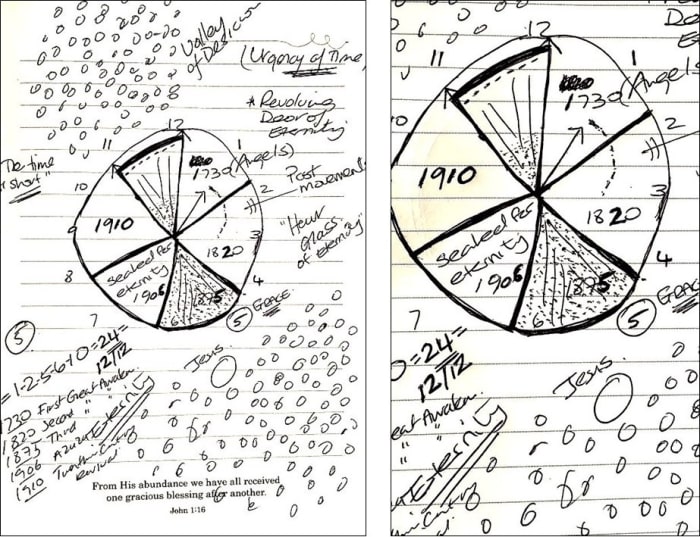 Valley
of Decision
(Urgency of Time)
* Revolving
Door of
Eternity
The time
"short"
12
11
1
1730 (Angels)
10
2
Past
movement
1910
9
3
1820
"Hour
Glass
of eternity"
sealed for
eternity
1906
8
1875
4
7
6
5
GRACE
5
= 1-2-5-6-10 = 24 =
12/12
Jesus
1730 First Great Awaken.
1820 Second " "
1875 Third " "
1906 Azusa
1910 Twentieth Century
revival
Eternity
From His abundance we have all received
one gracious blessing after another.
John 1:16
12
11
1
1730 (Angels)
10
2
1910
3
1820
sealed for
eternity
1906
1875
4
7
6
5
GRACE
0 = 24 =
12/12
Jesus
eat Awaken.
" "
" "
Eternity